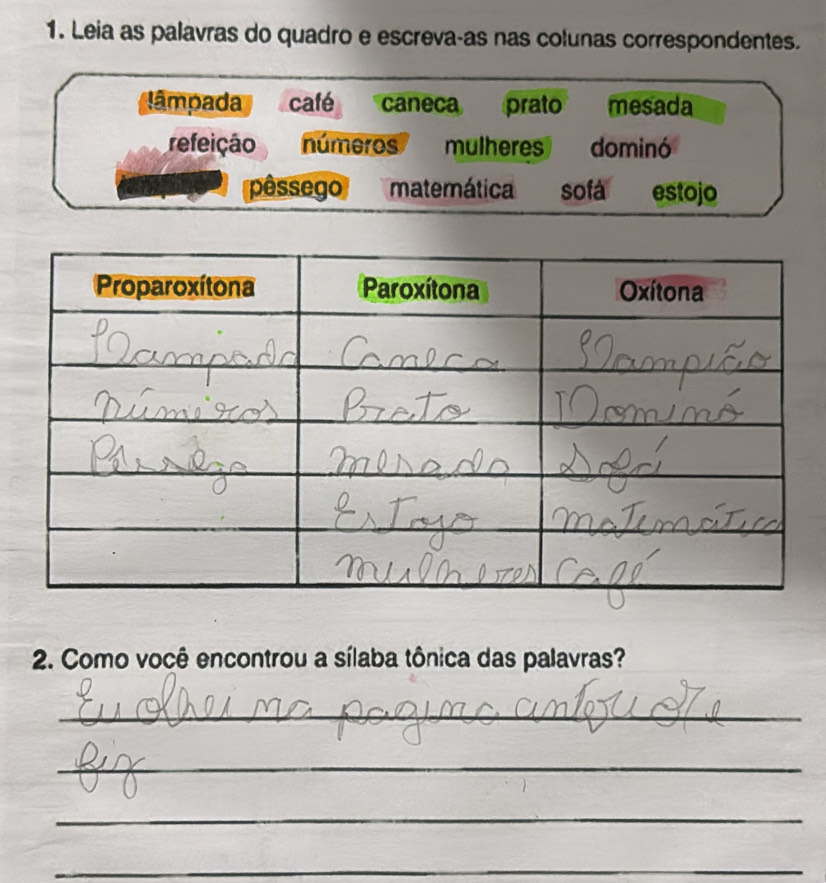 1. Leia as palavras do quadro e escreva-as nas colunas correspondentes.
lâmpada café caneca prato mesada
refeição números mulheres dominó
pêssego matemática sofá estojo
Proparoxítona Paroxítona Oxítona
Lampada Caneca Lampião
números Prato Dominó
Pêssego mesada Sofá
Estojo matemática
mulheres Café
2. Como você encontrou a sílaba tônica das palavras?
Eu olhei na pagina anteriore
fiz